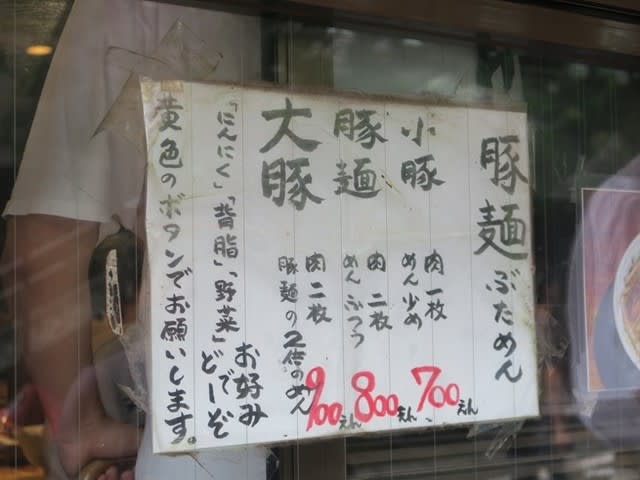 豚麺 ぶためん
小豚 肉一枚 めん少め 700えん
豚麺 肉二枚 めんふつう 800えん
大豚 肉二枚 豚麺の2倍のめん 900えん
「にんにく」「背脂」「野菜」お好みでどーぞ
黄色のボタンでお願いします。